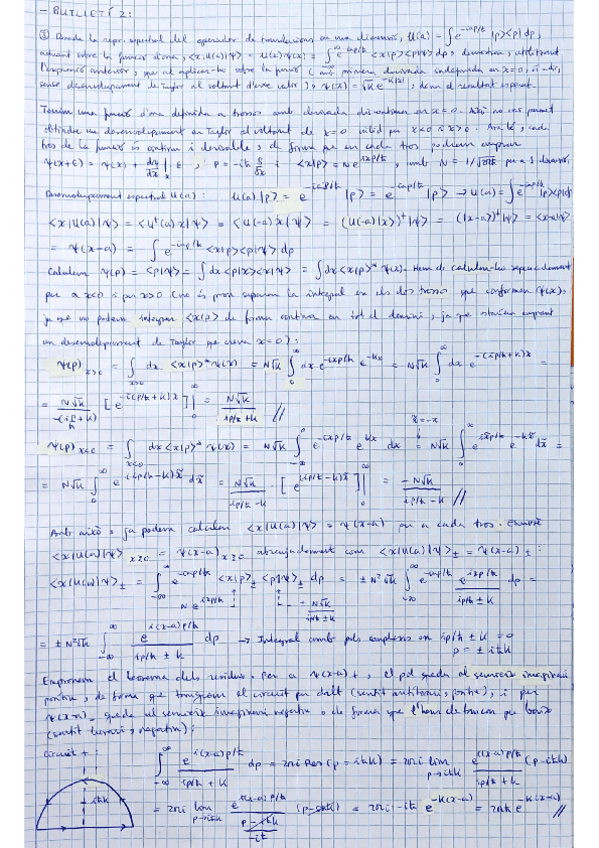 - BUTLLETÍ 2:
③ Donada la repr. espectral del operador de translacions en una dimensió, U(a) = ∫e^{-iap/ħ} |p><p| dp,
actuant sobre la funció d'ona, <x|U(a)|ψ> = U(a)ψ(x) = ∫_{-∞}^{∞} e^{-iap/ħ} <x|p><p|ψ> dp, demostreu, utilitzant
l'expressió anterior, que al aplicar-ho sobre la funció (amb primera derivada indefinida en x=0, és a dir,
sense desenvolupament de Taylor al voltant d'eixe valor), ψ(x) = √k e^{-k|x|}, dona el resultat esperat.
Tenim una funció d'ona definida a trossos amb derivada discontínua en x=0. Això no ens permet
obtindre un desenvolupament en Taylor al voltant de x=0 vàlid per x<0 i x>0. Ara bé, cada
tros de la funció és contínua i derivable, de forma que en cada tros podríem emprar
ψ(x+ε) = ψ(x) + dψ/dx|_x ε, p = -iħ δ/δx i <x|p> = N e^{ixp/ħ}, amb N = 1/√2πħ per a 1 dimensió.
Desenvolupament espectral U(a): U(a)|p> = e^{-iap/ħ} |p> = e^{-iap/ħ} |p> → U(a) = ∫e^{-iap/ħ} |p><p| dp
<x|U(a)|ψ> = <U⁺(a)x|ψ> = <U(-a)x|ψ> = (U(-a)|x>)⁺|ψ> = (|x-a>)⁺|ψ> = <x-a|ψ>
= ψ(x-a) = ∫e^{-iap/ħ} <x|p><p|ψ> dp
Calculem ψ(p) = <p|ψ> = ∫dx<p|x><x|ψ> = ∫dx<x|p>* ψ(x). Hem de calcular-ho separadament
per a x<0 i per x>0 (no és prou separar la integral en els dos trossos que conformen ψ(x),
ja que no podem integrar <x|p> de forma contínua en tot el domini, ja que estaríem emprant
un desenvolupament de Taylor que creua x=0):
ψ(p)_{x>0} = ∫_{x>0} dx <x|p>* ψ(x) = N√k ∫_0^∞ dx e^{-ixp/ħ} e^{-kx} = N√k ∫_0^∞ dx e^{-(ip/ħ+k)x} =
= N√k/-(ip/ħ+k) [e^{-(ip/ħ+k)x}]|_0^∞ = N√k/(ip/ħ+k) //
x̃=-x
ψ(p)_{x<0} = ∫_{x<0} dx<x|p>* ψ(x) = N√k ∫_{-∞}^0 e^{-ixp/ħ} e^{kx} dx = N√k ∫_0^∞ e^{ix̃p/ħ} e^{-kx̃} dx̃ =
= N√k ∫_0^∞ e^{(ip/ħ-k)x̃} dx̃ = N√k/(ip/ħ-k) · [e^{(ip/ħ-k)x̃}]|_0^∞ = -N√k/(ip/ħ-k) //
Amb això, ja podem calcular <x|U(a)|ψ> = ψ(x-a) per a cada tros. Escrivint
<x|U(a)|ψ>_{x≷0} = ψ(x-a)_{x≷0} abreujadament com <x|U(a)|ψ>_± = ψ(x-a)_±:
<x|U(a)|ψ>_± = ∫_{-∞}^{∞} e^{-iap/ħ} <x|p>_± <p|ψ>_± dp = ±N²√k ∫_{-∞}^{∞} e^{-iap/ħ} e^{ixp/ħ}/(ip/ħ±k) dp =
N e^{ixp/ħ} ± N√k/(ip/ħ±k)
= ±N²√k ∫_{-∞}^{∞} e^{i(x-a)p/ħ}/(ip/ħ±k) dp → Integral amb pols complexos en ip/ħ ± k = 0
p = ± iħk
Emprarem el teorema dels residus. Per a ψ(x-a)_+, el pol queda al semieix imaginari
positiu, de forma que tanquem el circuit per dalt (sentit antihorari, positiu), i per
ψ(x-a)_- queda al semieix imaginari negatiu, de forma que l'hem de tancar per baix
(sentit horari, negatiu):
Circuit +:
iħk
∫_{-∞}^{∞} e^{i(x-a)p/ħ}/(ip/ħ+k) dp = 2πi Res(p=iħk) = 2πi lim_{p→iħk} e^{i(x-a)p/ħ}/(ip/ħ+k) (p-iħk)
= 2πi lim_{p→iħk} e^{i(x-a)p/ħ}/((p-iħk)/-iħ) (p-iħk) = 2πi·-iħ e^{-k(x-a)} = 2πħ e^{-k(x-a)} //